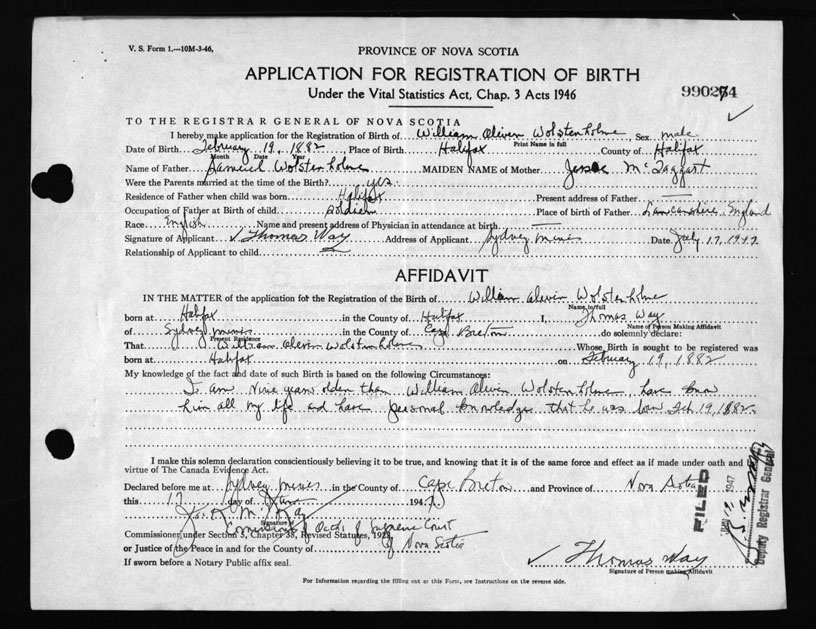 V. S. Form 1.—10M-3-46,
PROVINCE OF NOVA SCOTIA
APPLICATION FOR REGISTRATION OF BIRTH
Under the Vital Statistics Act, Chap. 3 Acts 1946
TO THE REGISTRAR GENERAL OF NOVA SCOTIA
I hereby make application for the Registration of Birth of William Oliver Wolstenholme, Sex male
Print Name in full
Date of Birth February 19, 1882, Place of Birth Halifax County of Halifax
Month Date Year
Name of Father Samuel Wolstenholme MAIDEN NAME of Mother Jessie McTaggart
Were the Parents married at the time of the Birth? yes.
Residence of Father when child was born Halifax Present address of Father —
Occupation of Father at Birth of child Soldier Place of birth of Father Lancashire, England
Race English Name and present address of Physician in attendance at birth —
Signature of Applicant Thomas Way Address of Applicant Sydney Mines Date July 17, 1947
Relationship of Applicant to child
AFFIDAVIT
IN THE MATTER of the application for the Registration of Birth of William Oliver Wolstenholme
Name in full
born at Halifax in the County of Halifax I, Thomas Way
Name of Person Making Affidavit
of Sydney Mines in the County of Cape Breton do solemnly declare:
Present Residence
That William Oliver Wolstenholme Whose Birth is sought to be registered was
born at Halifax on February 19, 1882
My knowledge of the fact and date of such Birth is based on the following Circumstances:
I am nine years older than William Oliver Wolstenholme, have know
him all my life and have personal knowledge that he was born Feb 19, 1882.
I make this solemn declaration conscientiously believing it to be true, and knowing that it is of the same force and effect as if made under oath and by
virtue of The Canada Evidence Act.
Declared before me at Sydney Mines in the County of Cape Breton and Province of Nova Scotia
this 17 day of 1947
Signature of
Commissioner under Section 3, Chapter 38, Revised Statutes, 1923,
of Supreme Court
of Nova Scotia
or Justice of the Peace in and for the County of
If sworn before a Notary Public affix seal.
Thomas Way
Signature of Person making Affidavit
For Information regarding the filling out of this Form, see Instructions on the reverse side.
FILED
1947
Deputy Registrar General